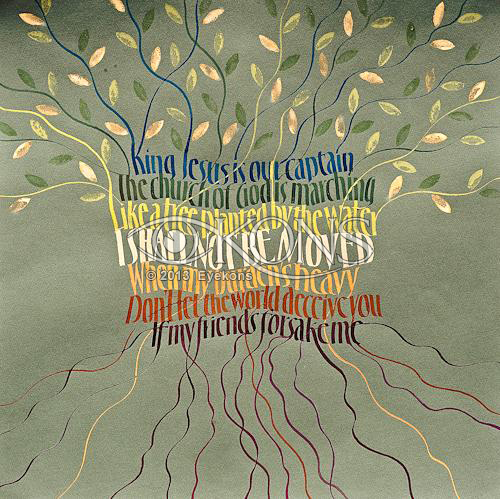 King Jesus is our captain
The church of God is marching
Like a tree planted by the water
I SHALL NOT BE MOVED
EYEKONS
© 2013 Eyekons
When my burden's heavy
Don't let the world deceive you
If my friends forsake me